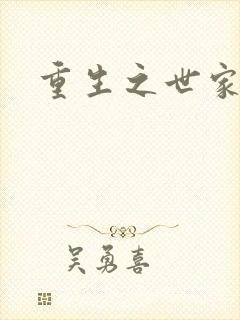 重生之世家
吴勇喜